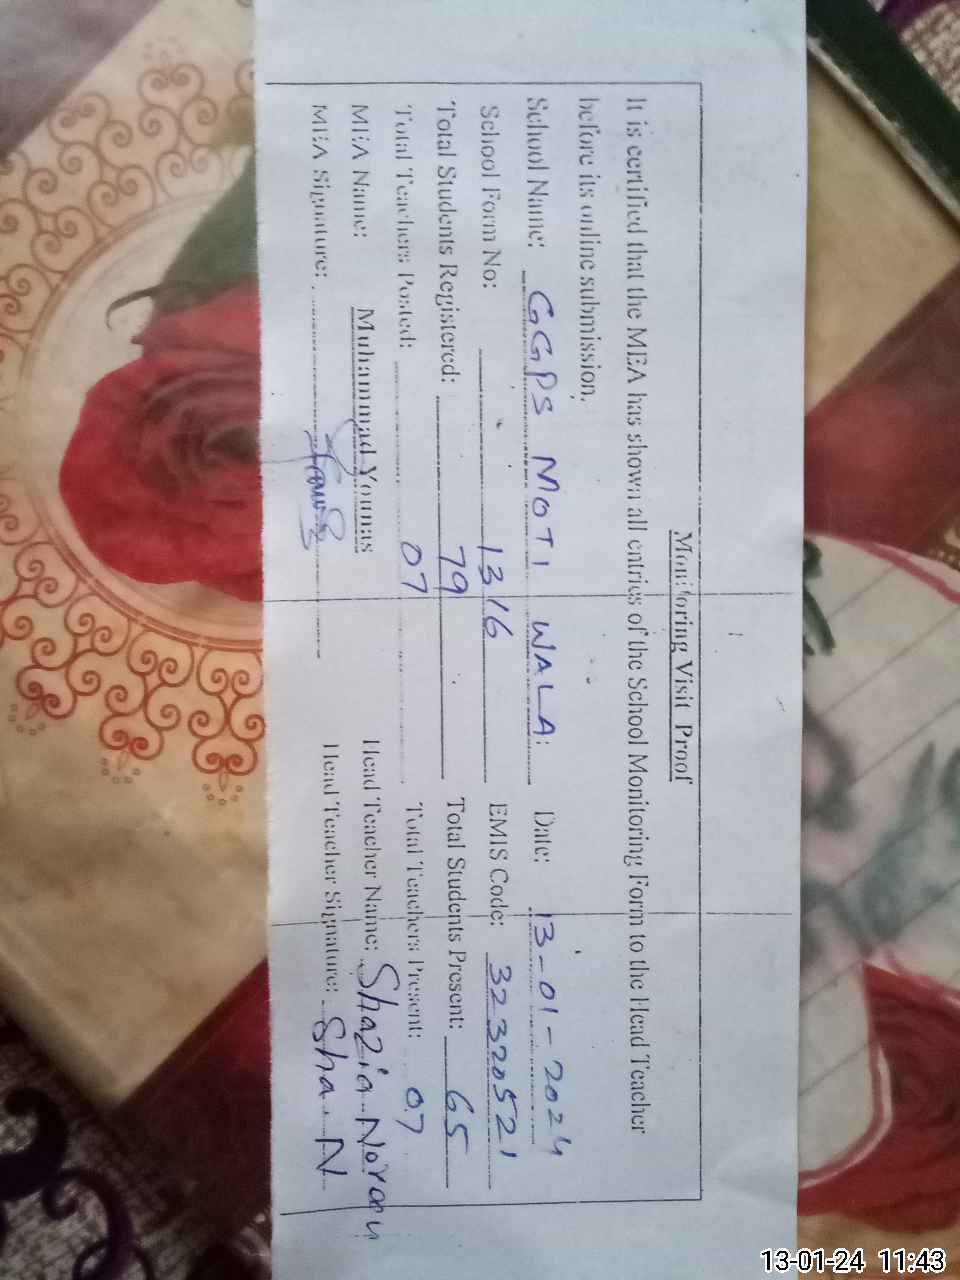 Monitoring Visit Proof
It is certified that the MEA has shown all entries of the School Monitoring Form to the Head Teacher
before its online submission.
School Name: GGPS MOTI WALA: Date: 13-01-2024
School Form No: 1316 EMIS Code: 32320521
Total Students Registered: 79 Total Students Present: 65
Total Teachers Posted: 07 Total Teachers Present: 07
MEA Name: Muhammad Younas Head Teacher Name: Shazia
MEA Signature: Head Teacher Signature: Sha N
13-01-24 11:43